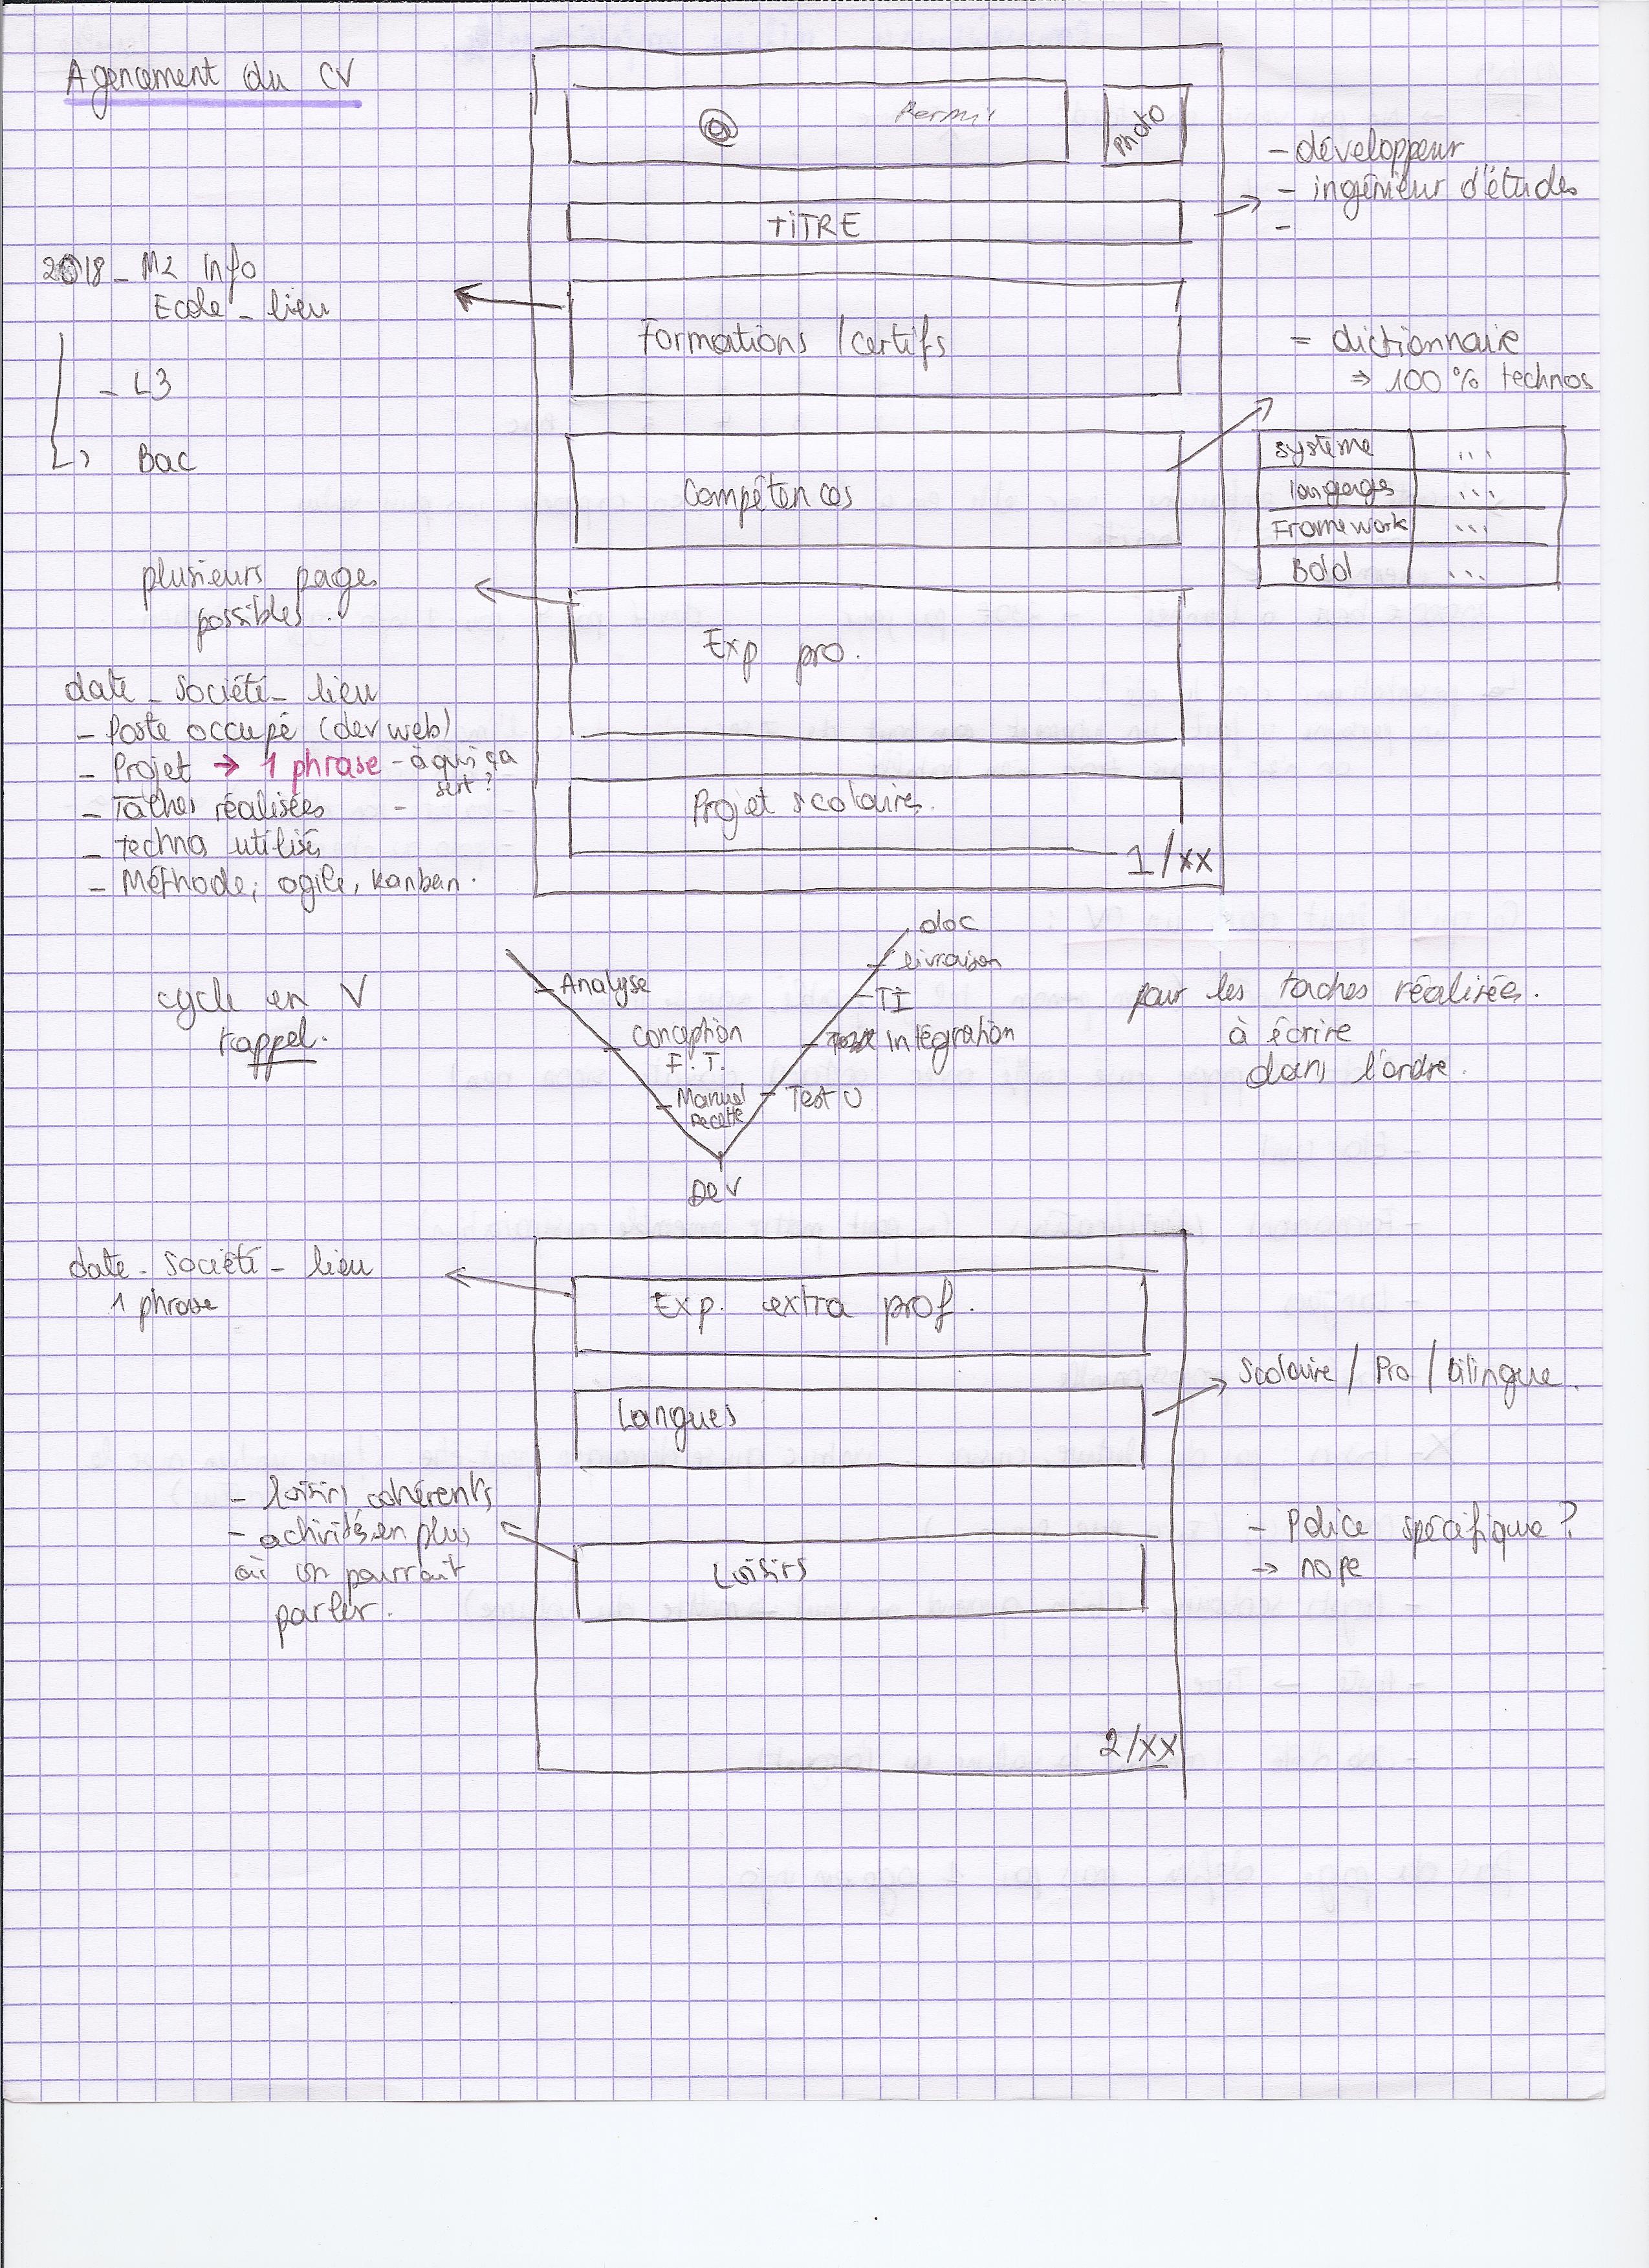 Agencement du CV
@ Permis
Photo
- développeur
- ingénieur d'études
-
TITRE
2018 - M2 Info
Ecole - lieu
- L3
Bac
Formations / certifs
= dictionnaire
⇒ 100 % technos
Compétences
système ...
langages ...
Framework ...
Bdd ...
plusieurs pages
possibles.
Exp pro.
date - société - lieu
- Poste occupé (dev web)
- Projet → 1 phrase - à qui ça
sert ?
- Tâches réalisées -
- techno utilisés
- Méthode; agile, kanban.
Projet scolaires.
1/xx
cycle en V
rappel.
Analyse
conception
F. T.
Manuel
recette
Dev
Test U
intégration
TI
livraison
doc
pour les taches réalisées.
à écrire
dans l'ordre.
date - société - lieu
1 phrase
Exp. extra prof.
Langues
Scolaire / Pro / bilingue.
- loisirs cohérents
- activités en plus
où on pourrait
parler.
Loisirs
- Police spécifique ?
→ nope
2/xx